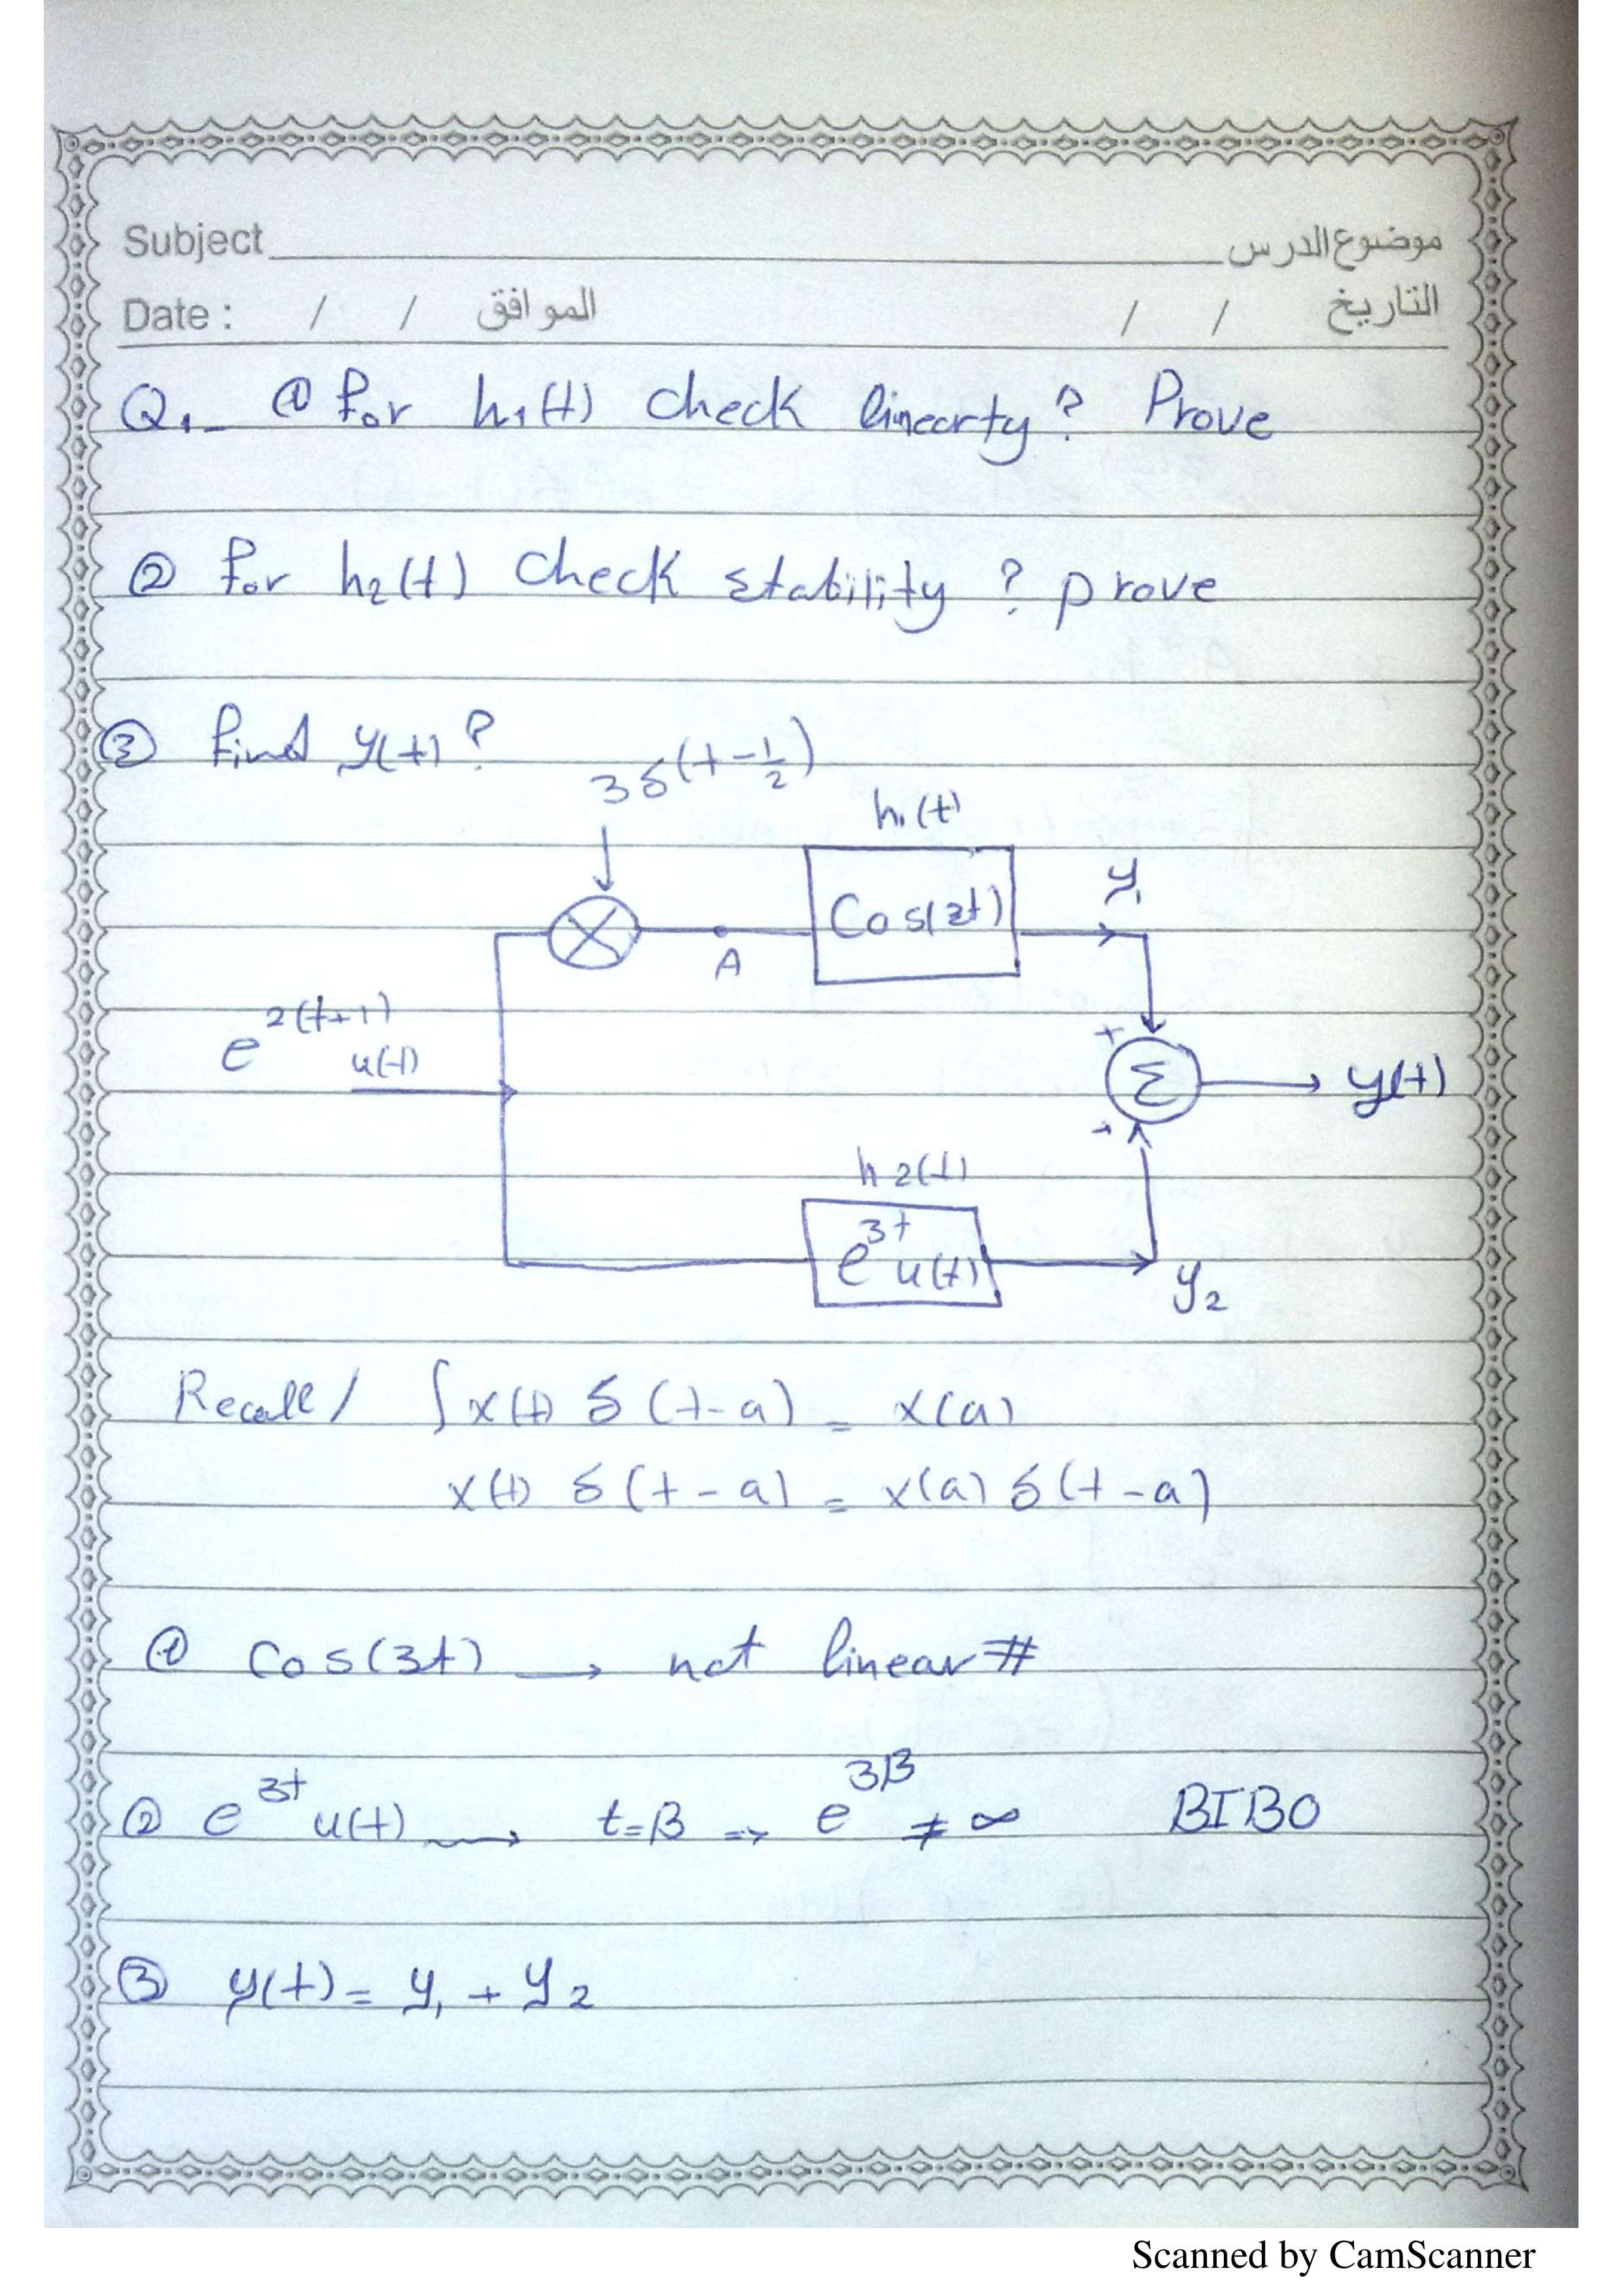 Subject موضوع الدرس
Date : / / الموافق / / التاريخ
Q1- ① for h1(t) check linearty? Prove
② for h2(t) check stability? prove
③ find y(t)?
3δ(t-1/2)
h1(t)
Cos(3t)
y1
A
e^2(t+1) u(t)
+
Σ
y(t)
+
h2(t)
e^3t u(t)
y2
Recall / ∫x(t) δ(t-a) = x(a)
x(t) δ(t-a) = x(a) δ(t-a)
① Cos(3t) → not linear #
② e^3t u(t) → t=β => e^3β ≠ ∞ BIBO
③ y(t) = y1 + y2
Scanned by CamScanner